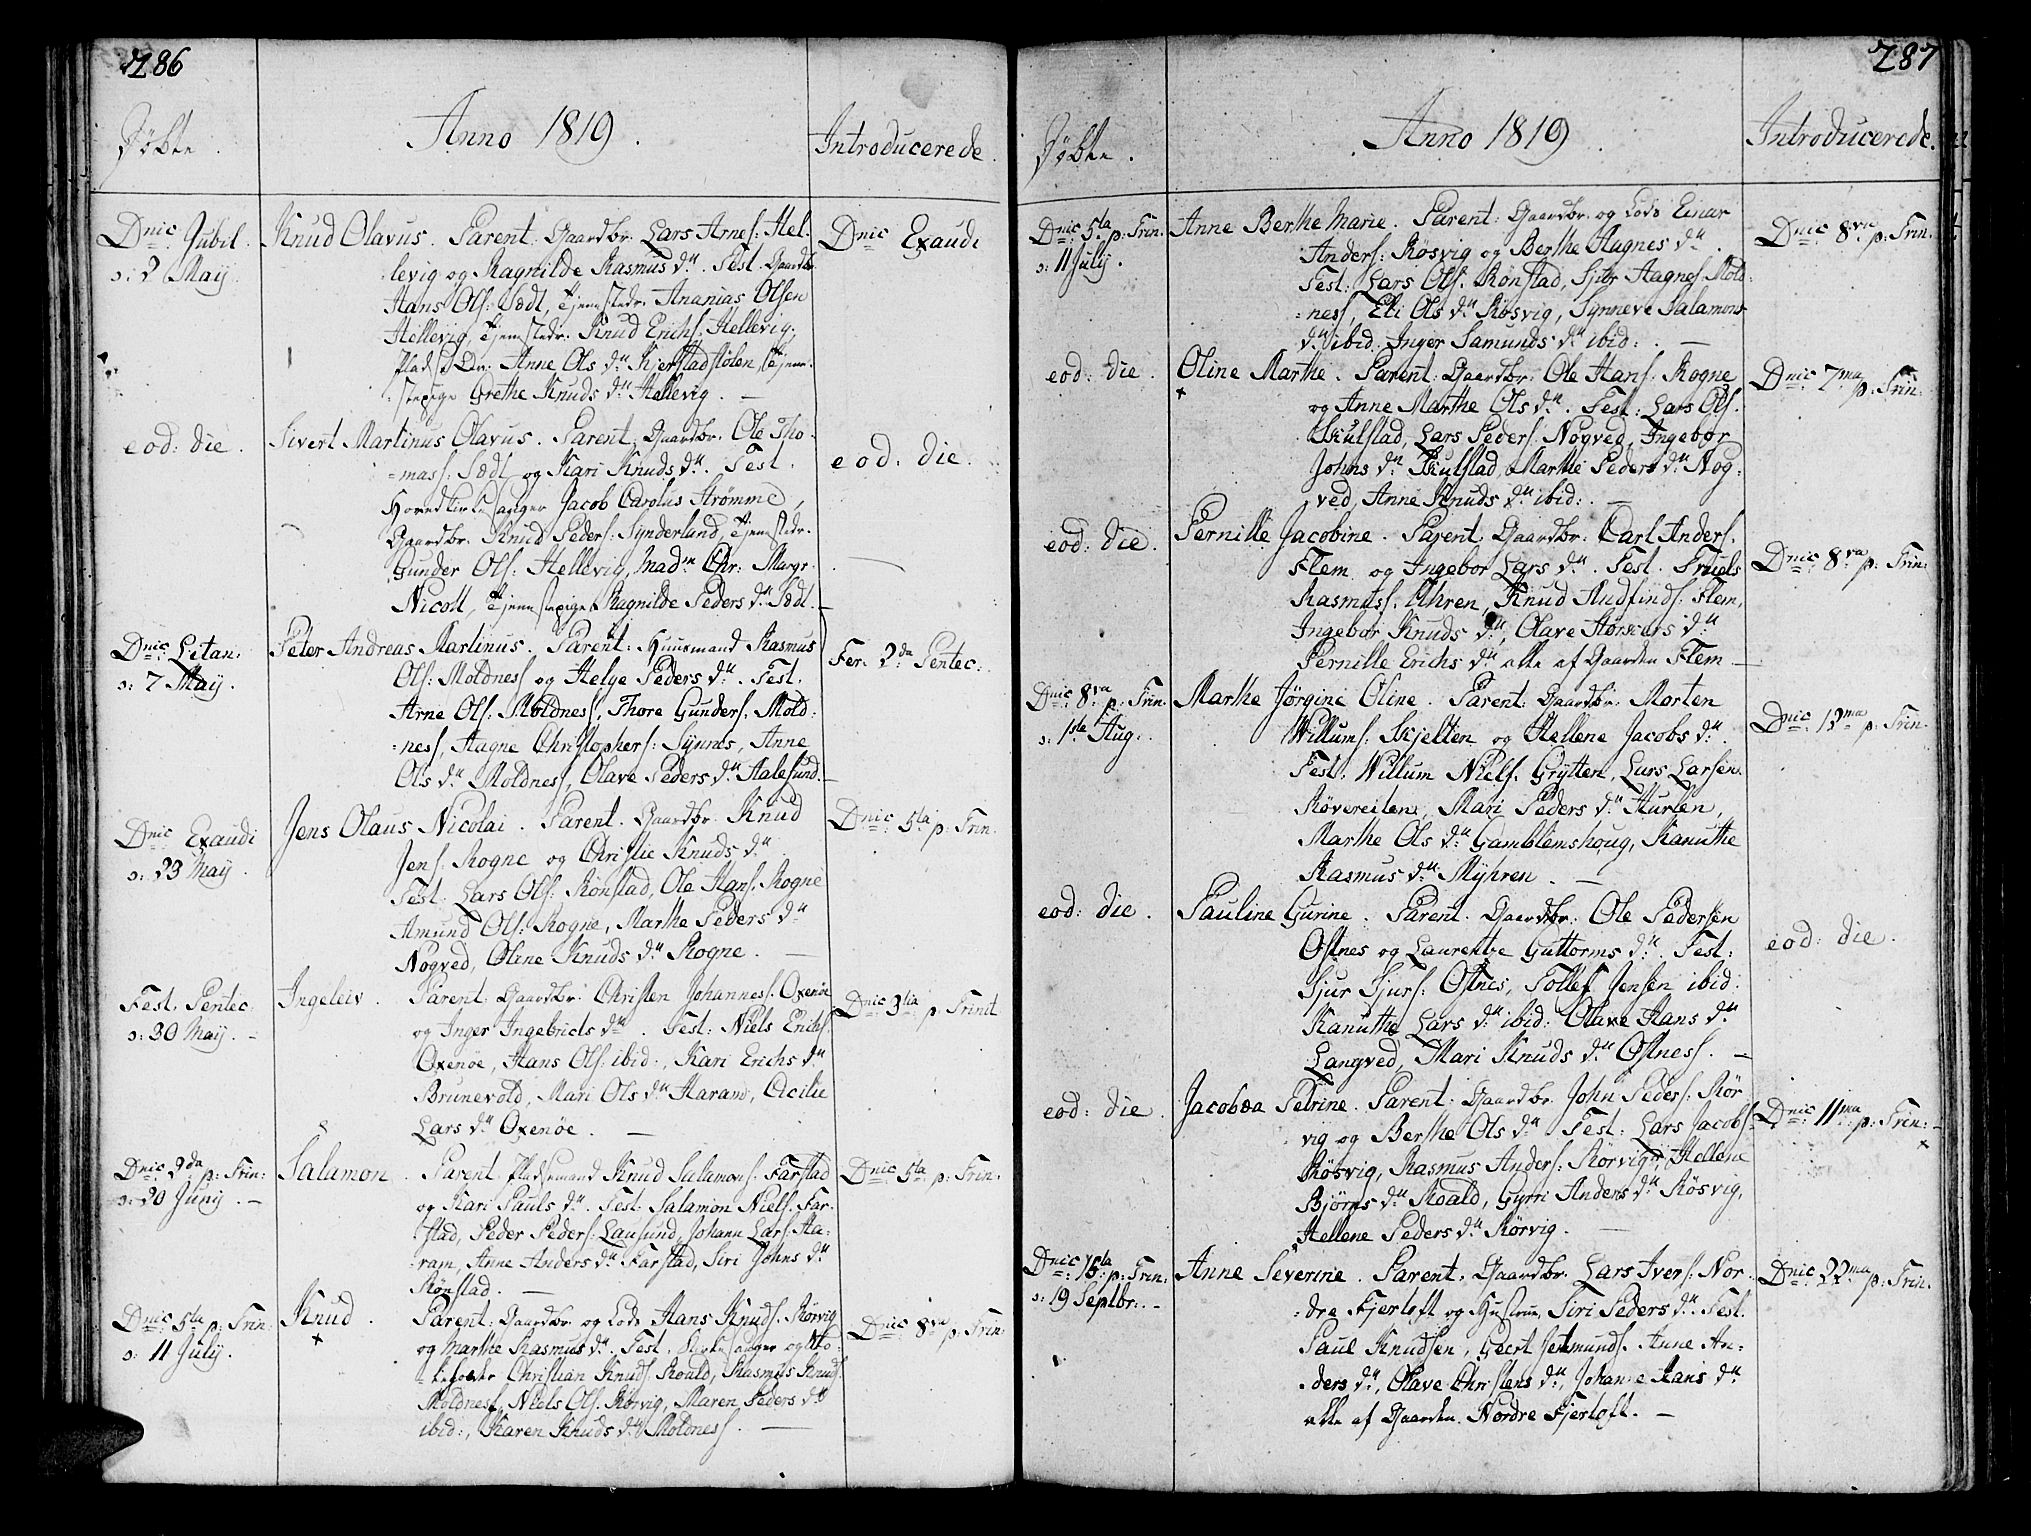 286
Anno 1819.
Døbte.
Introducerede.
Dnic Jubil.
ɔ: 2 Maÿ
Knud Olavus. Parent: Gaardbr. Lars Arnes: Hel-
levig og Ragnilde Rasmus dtr. Test. Gaardbr.
Hans Ols: Sædt, tjenestedr. Ananias Olsen
Hellevig, tjenestedr. Knud Erichs: Hellevig.
Anne Ols dtr Kjerstadstølen, tjene-
stepige Grethe Knuds dtr Hellevig. —
Dnic Exaudi
eod: die.
Sivert Martinus Olavus. Parent: Gaardbr. Ole Tho-
mass: Sædt og Kari Knuds dtr. Test.
Jacob Carolus Strømme,
Gaardbr. Knud Peders: Synderland, tjenestedr.
Gunder Ols: Hellevig, Madm Chr: Margr.
Nicoll, tjenestepige Ragnilde Peders dtr Sædt.
eod: die.
Dnic Letan.
ɔ: 7 Maÿ.
Peter Andreas Martinus. Parent: Huusmand Rasmus
Ols: Moldness og Helge Peders dtr. Test.
Arne Ols: Moldness, Thore Gunders: Mold-
ness, Aagne Christophers: Synnes, Anne
Ols dtr Moldness, Olave Peders dtr Aalesund.
Fer. 2da Pentec.
Dnic Exaudi
ɔ: 23 Maÿ.
Jens Olaus Nicolai. Parent. Gaardbr. Knud
Jens: Rogne og Christie Knuds dtr.
Test: Lars Ols: Rønstad, Ole Hans: Rogne
Amund Ols: Rogne, Marthe Peders dtr
Nogved, Oline Knuds dtr Rogne. —
Dnic 5ta p: Trin.
Fest. Pentec.
ɔ: 30 Maÿ. —
Ingeleiv. Parent. Gaardbr. Christen Johanness: Oxenøe
og Inger Ingebricts dtr. Test: Niels Erichs:
Oxenøe, Hans Ols: ibid:, Kari Erichs dtr
Brunevold, Mari Ols dtr Haram, Cicilie
Lars dtr Oxenøe. —
Dnic 3tia p: Trinit
Dnic 2da p: Trin:
ɔ: 20 Junÿ. —
Salamon. Parent. Pladsmand Knud Salamons: Farstad
og Kari Pauls dtr. Test: Salamon Niels: Far-
stad, Peder Peders: Lausund, Johann Lars: Ha-
ram, Anne Anders dtr Farstad, Siri Johns dtr
Rønstad. —
Dnic 5ta p: Trin.
Dnic 5ta p: Trin:
ɔ: 11 Julÿ.
Knud. Parent: Gaardbr og Lods Hans Knuds: Rørvig
og Marthe Rasmus dtr. Test. Kirkesanger og
Christian Knuds: Roald, Rasmus Knuds:
Moldness, Niels Ols: Rørvig, Maren Peders dtr
ibid:, Karen Knuds dtr Moldness. —
Dnic 8va p: Trin:
287
Anno 1819.
Døbte.
Introducerede.
Dnic 5ta p: Trin.
ɔ: 11 Julÿ.
Anne Berthe Marie. Parent: Gaardbr. og Lods Einar
Anders: Røsvig og Berthe Aagnes dtr.
Test: Lars Ols: Rønstad, Sjur Aagnes: Mold-
ness, Eli Ols dtr Røsvig, Synneve Salamons
dtr ibid. Inger Samunds dtr ibid: —
Dnic 8va p: Trin.
eod: die.
Oline Marthe. Parent: Gaardbr: Ole Hans: Rogne
og Anne Marthe Ols dtr. Test: Lars Ols:
Skulstad, Lars Peders: Nogved, Ingebor
Johns dtr Skulstad, Marthe Peders dtr Nog-
ved, Anne Knuds dtr ibid: —
Dnic 7ma p: Trin:
eod: die.
Pernille Jacobine. Parent: Gaardbr. Carl Anders:
Flem og Ingebor Lars dtr. Test. Truels
Rasmuss: Uhren, Knud Audfinds: Flem,
Ingebor Knuds dtr, Olave Størkers dtr
Pernille Erichs dtr alle af Gaarden Flem —
Dnic 8va p: Trin:
Dnic 8va p: Trin.
ɔ: 1ste Aug:
Marthe Jørgine Oline. Parent: Gaardbr: Morten
Willums: Skjelten og Hellene Jacobs dtr.
Test. Willum Niels: Grytten, Lars Larsen
Røvereiten, Mari Peders dtr Hurlen,
Marthe Ols dtr Gamblemshoug, Kanuthe
Rasmus dtr Myhren. —
Dnic 12ma p: Trin.
eod: die.
Pauline Gurine. Parent. Gaardbr: Ole Pedersen
Ostnes og Laurentze Guttorms dtr. Test:
Sjur Sjurs: Ostnes, Tollef Jensen ibid:
Kanuthe Lars dtr ibid: Olave Hans dtr
Langved, Mari Knuds dtr Ostness. —
eod: die.
eod: die.
Jacobæa Petrine. Parent: Gaardbr. John Peders: Rør-
vig og Berthe Ols dtr. Test: Lars Jacobs:
Røsvig, Rasmus Anders: Rørvig, Hellene
Bjørns dtr Roald, Gyrri Anders dtr Røsvig,
Hellene Peders dtr Rørvig. —
Dnic 11ma p: Trin: —
Dnic 15ta p: Trin:
ɔ: 19 Septbr: —
Anne Severine. Parent: Gaardbr. Lars Ivers: Nor-
dre Fjertoft og Hustrue Siri Peders dtr. Test.
Paul Knudsen, Geert Jetmunds: Anne An-
ders dtr, Olave Christens dtr, Johanne Hans dtr
alle af Gaarden Nordre Fjertoft. —
Dnic 22ma p: Trin.